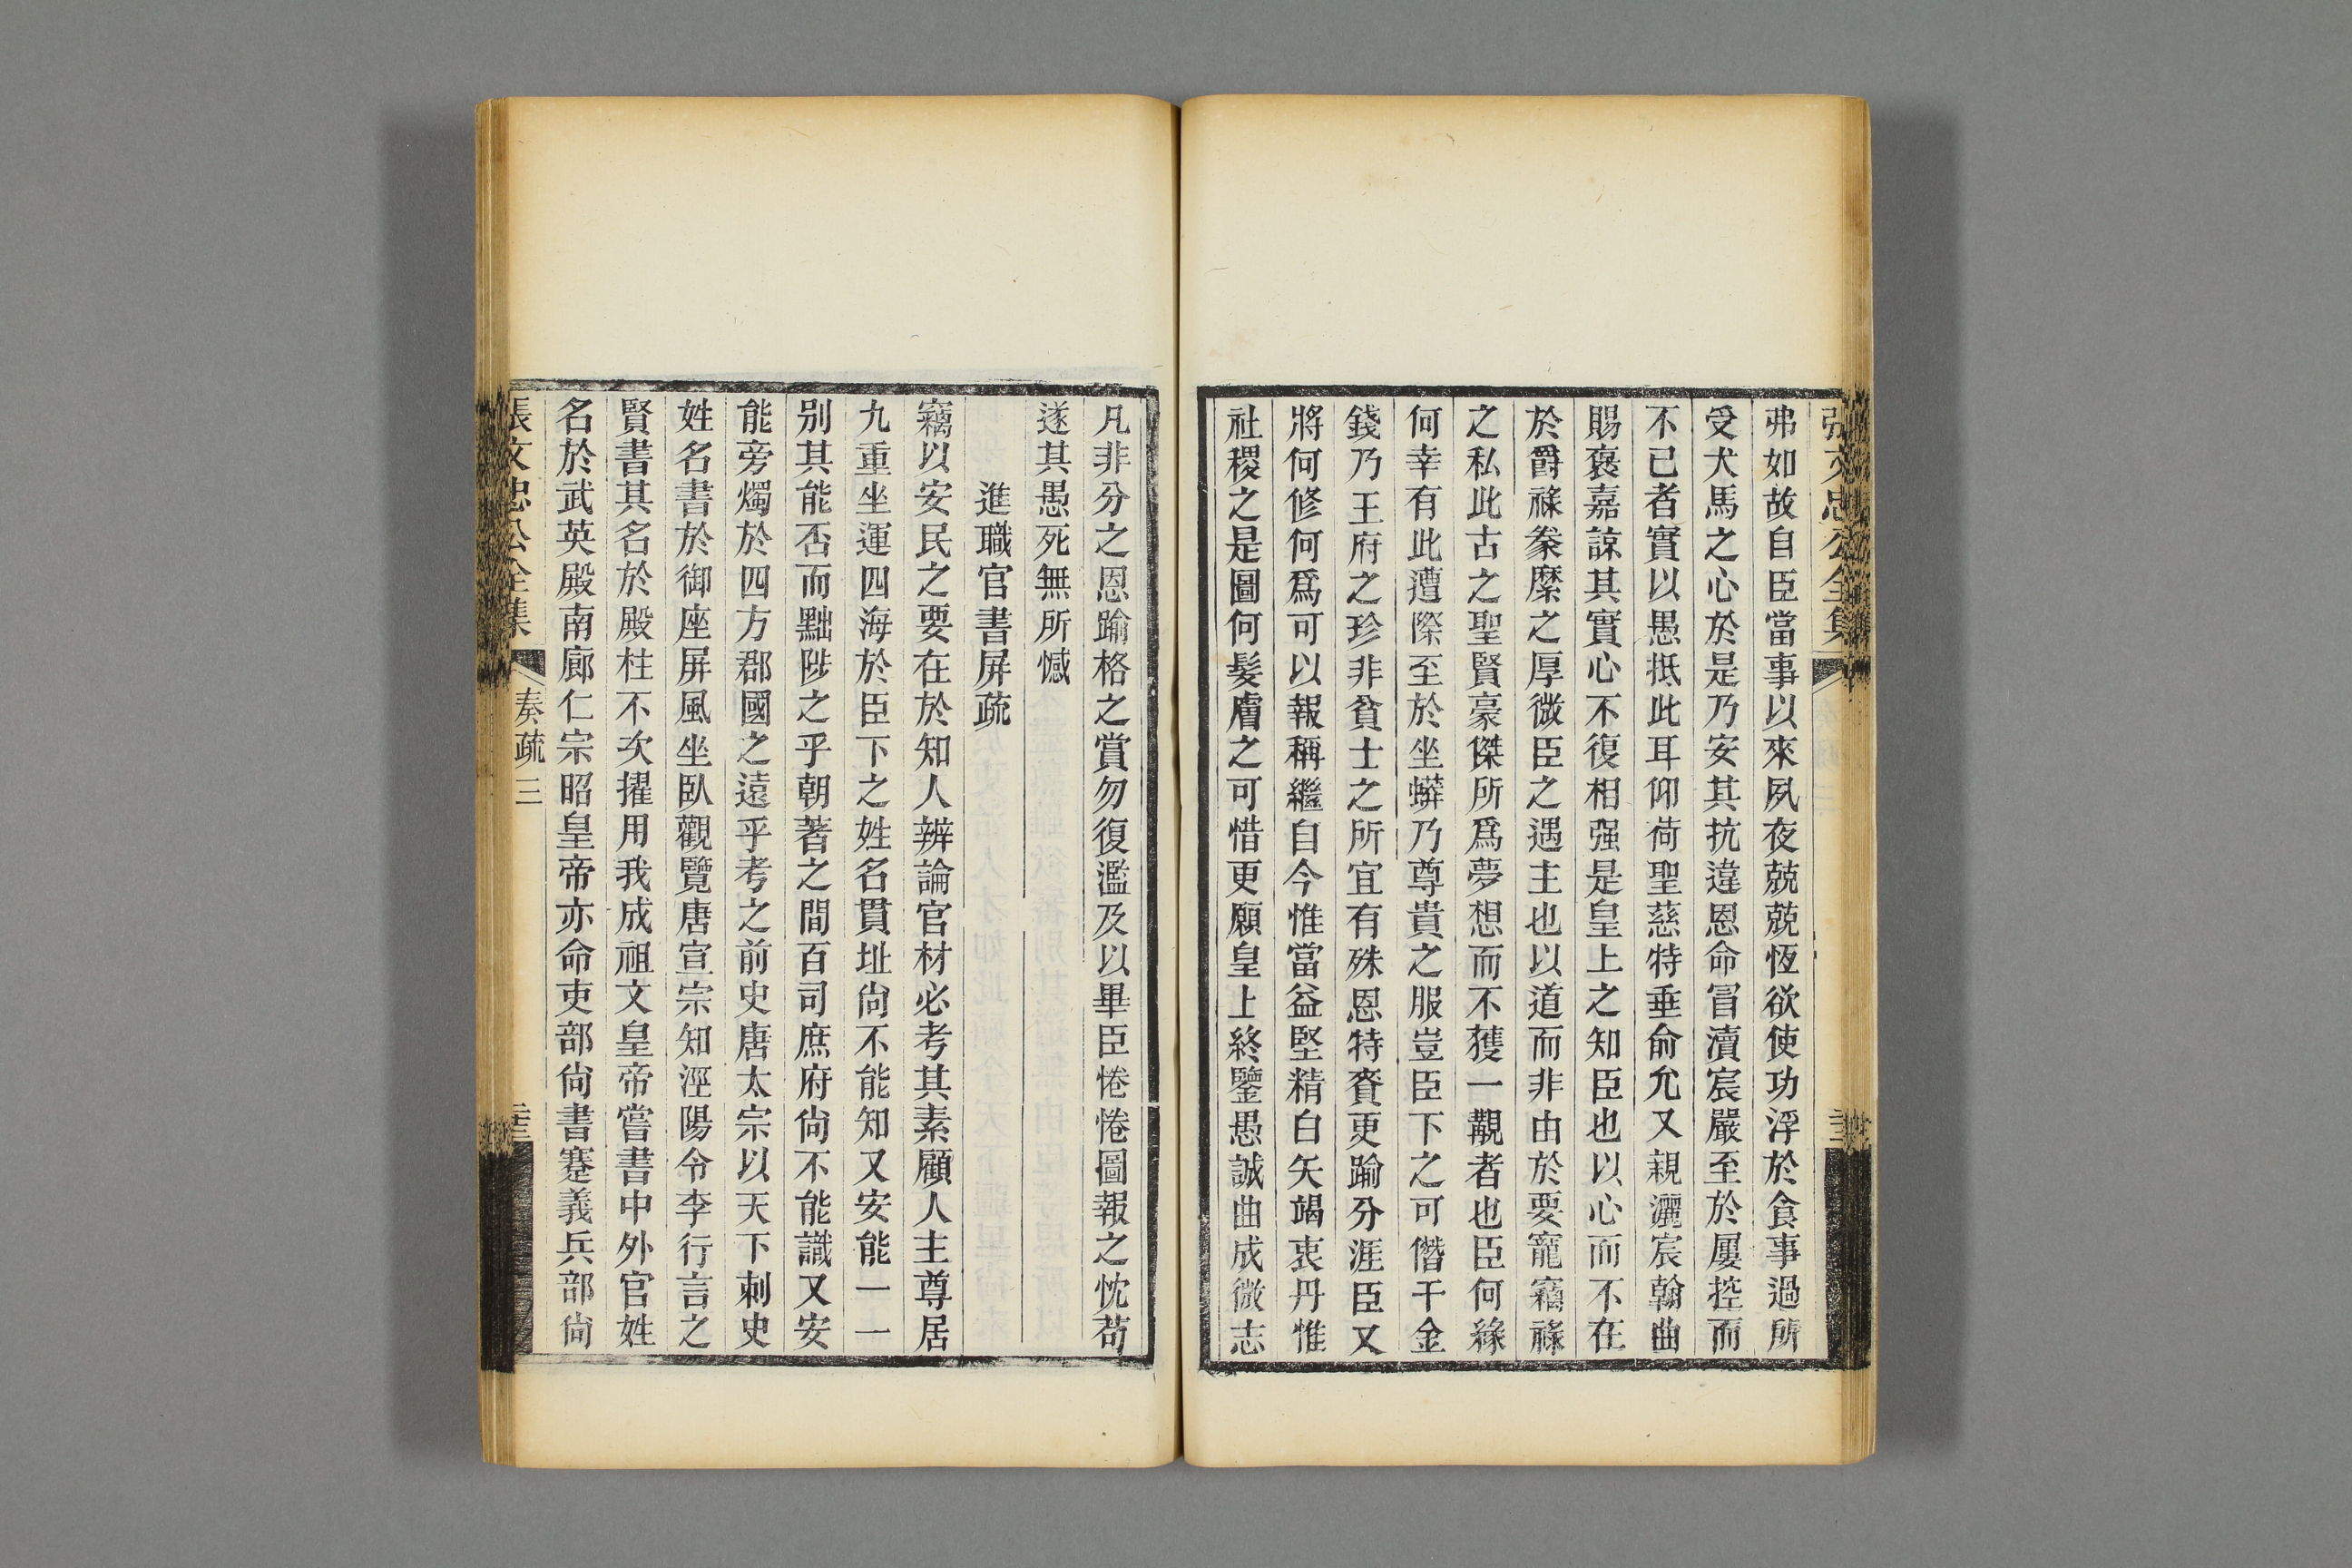 張文忠公全集
弗如故自臣當事以來夙夜兢兢恆欲使功浮於食事過所
受犬馬之心於是乃安其抗違恩命冒瀆宸嚴至於屢控而
不已者實以愚抵此耳仰荷聖慈特垂俞允又親灑宸翰曲
賜褒嘉諒其實心不復相强是皇上之知臣也以心而不在
於爵祿豢縻之厚微臣之遇主也以道而非由於要寵竊祿
之私此古之聖賢豪傑所爲夢想而不獲一覯者也臣何緣
何幸有此遭際至於坐蟒乃尊貴之服豈臣下之可僭千金
錢乃王府之珍非貧士之所宜有殊恩特賚更踰分涯臣又
將何修何爲可以報稱繼自今惟當益堅精白矢竭衷丹惟
社稷之是圖何髮膚之可惜更願皇上終鑒愚誠曲成微志
凡非分之恩踰格之賞勿復濫及以畢臣惓惓圖報之忱苟
遂其愚死無所憾
進職官書屏疏
竊以安民之要在於知人辨論官材必考其素顧人主尊居
九重坐運四海於臣下之姓名貫址尙不能知又安能一一
别其能否而黜陟之乎朝著之間百司庶府尙不能識又安
能旁燭於四方郡國之遠乎考之前史唐太宗以天下刺史
姓名書於御座屏風坐臥觀覽唐宣宗知涇陽令李行言之
賢書其名於殿柱不次擢用我成祖文皇帝嘗書中外官姓
名於武英殿南廊仁宗昭皇帝亦命吏部尙書蹇義兵部尙
張文忠公全集
奏疏三